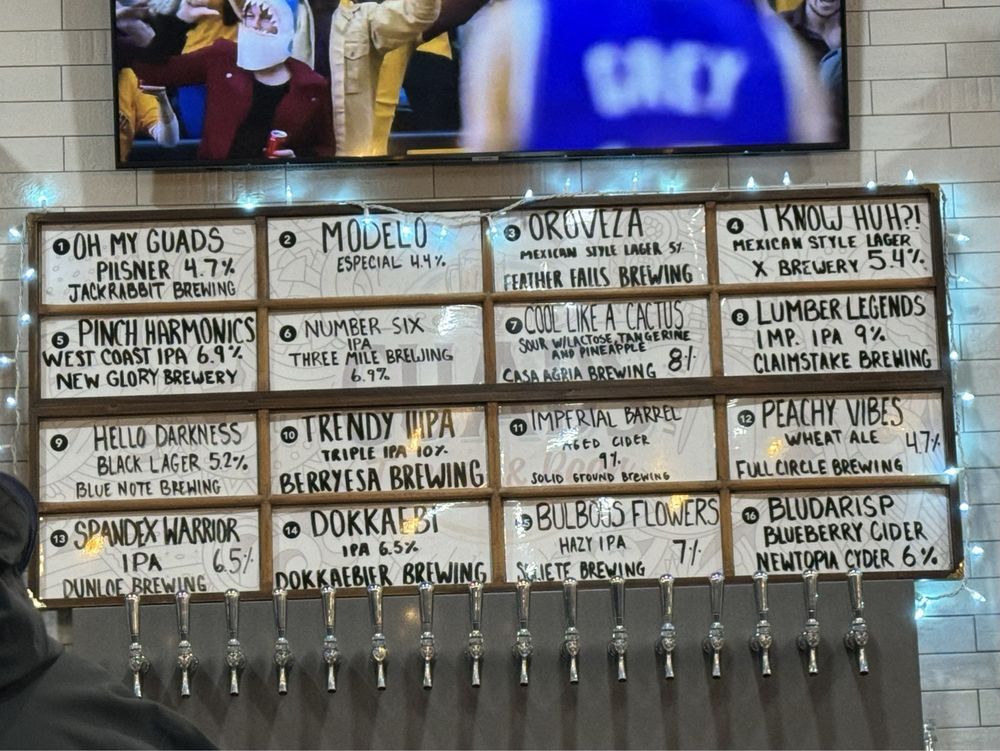 CREY
1 OH MY GUADS
PILSNER 4.7%
JACKRABBIT BREWING
2 MODELO
ESPECIAL 4.4%
3 OROVEZA
MEXICAN STYLE LAGER 5%
FEATHER FALLS BREWING
4 I KNOW HUH?!
MEXICAN STYLE LAGER
X BREWERY 5.4%
5 PINCH HARMONICS
WEST COAST IPA 6.9%
NEW GLORY BREWERY
6 NUMBER SIX
IPA
THREE MILE BREWING
6.9%
7 COOL LIKE A CACTUS
SOUR W/LACTOSE, TANGERINE
AND PINEAPPLE
CASA AGRIA BREWING 8%
8 LUMBER LEGENDS
IMP. IPA 9%
CLAIMSTAKE BREWING
9 HELLO DARKNESS
BLACK LAGER 5.2%
BLUE NOTE BREWING
10 TRENDY IIIPA
TRIPLE IPA 10%
BERRYESA BREWING
11 IMPERIAL BARREL
AGED CIDER
9%
SOLID GROUND BREWING
12 PEACHY VIBES
WHEAT ALE 4.7%
FULL CIRCLE BREWING
13 SPANDEX WARRIOR
IPA 6.5%
DUNLOE BREWING
14 DOKKAEBI
IPA 6.5%
DOKKAEBIER BREWING
15 BULBOUS FLOWERS
HAZY IPA 7%
BREWING
16 BLUDARISP
BLUEBERRY CIDER
NEWTOPIA CYDER 6%